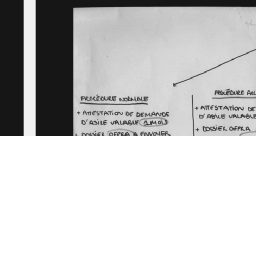 PROCÉDURE NORMALE
+ ATTESTATION DE DEMANDE
D'ASILE VALABLE 1 MOIS
+ DOSSIER OFPRA À ENVOYER
PROCÉDURE
+ ATTESTATION DE
D'ASILE VALABLE
+ DOSSIER OFPRA